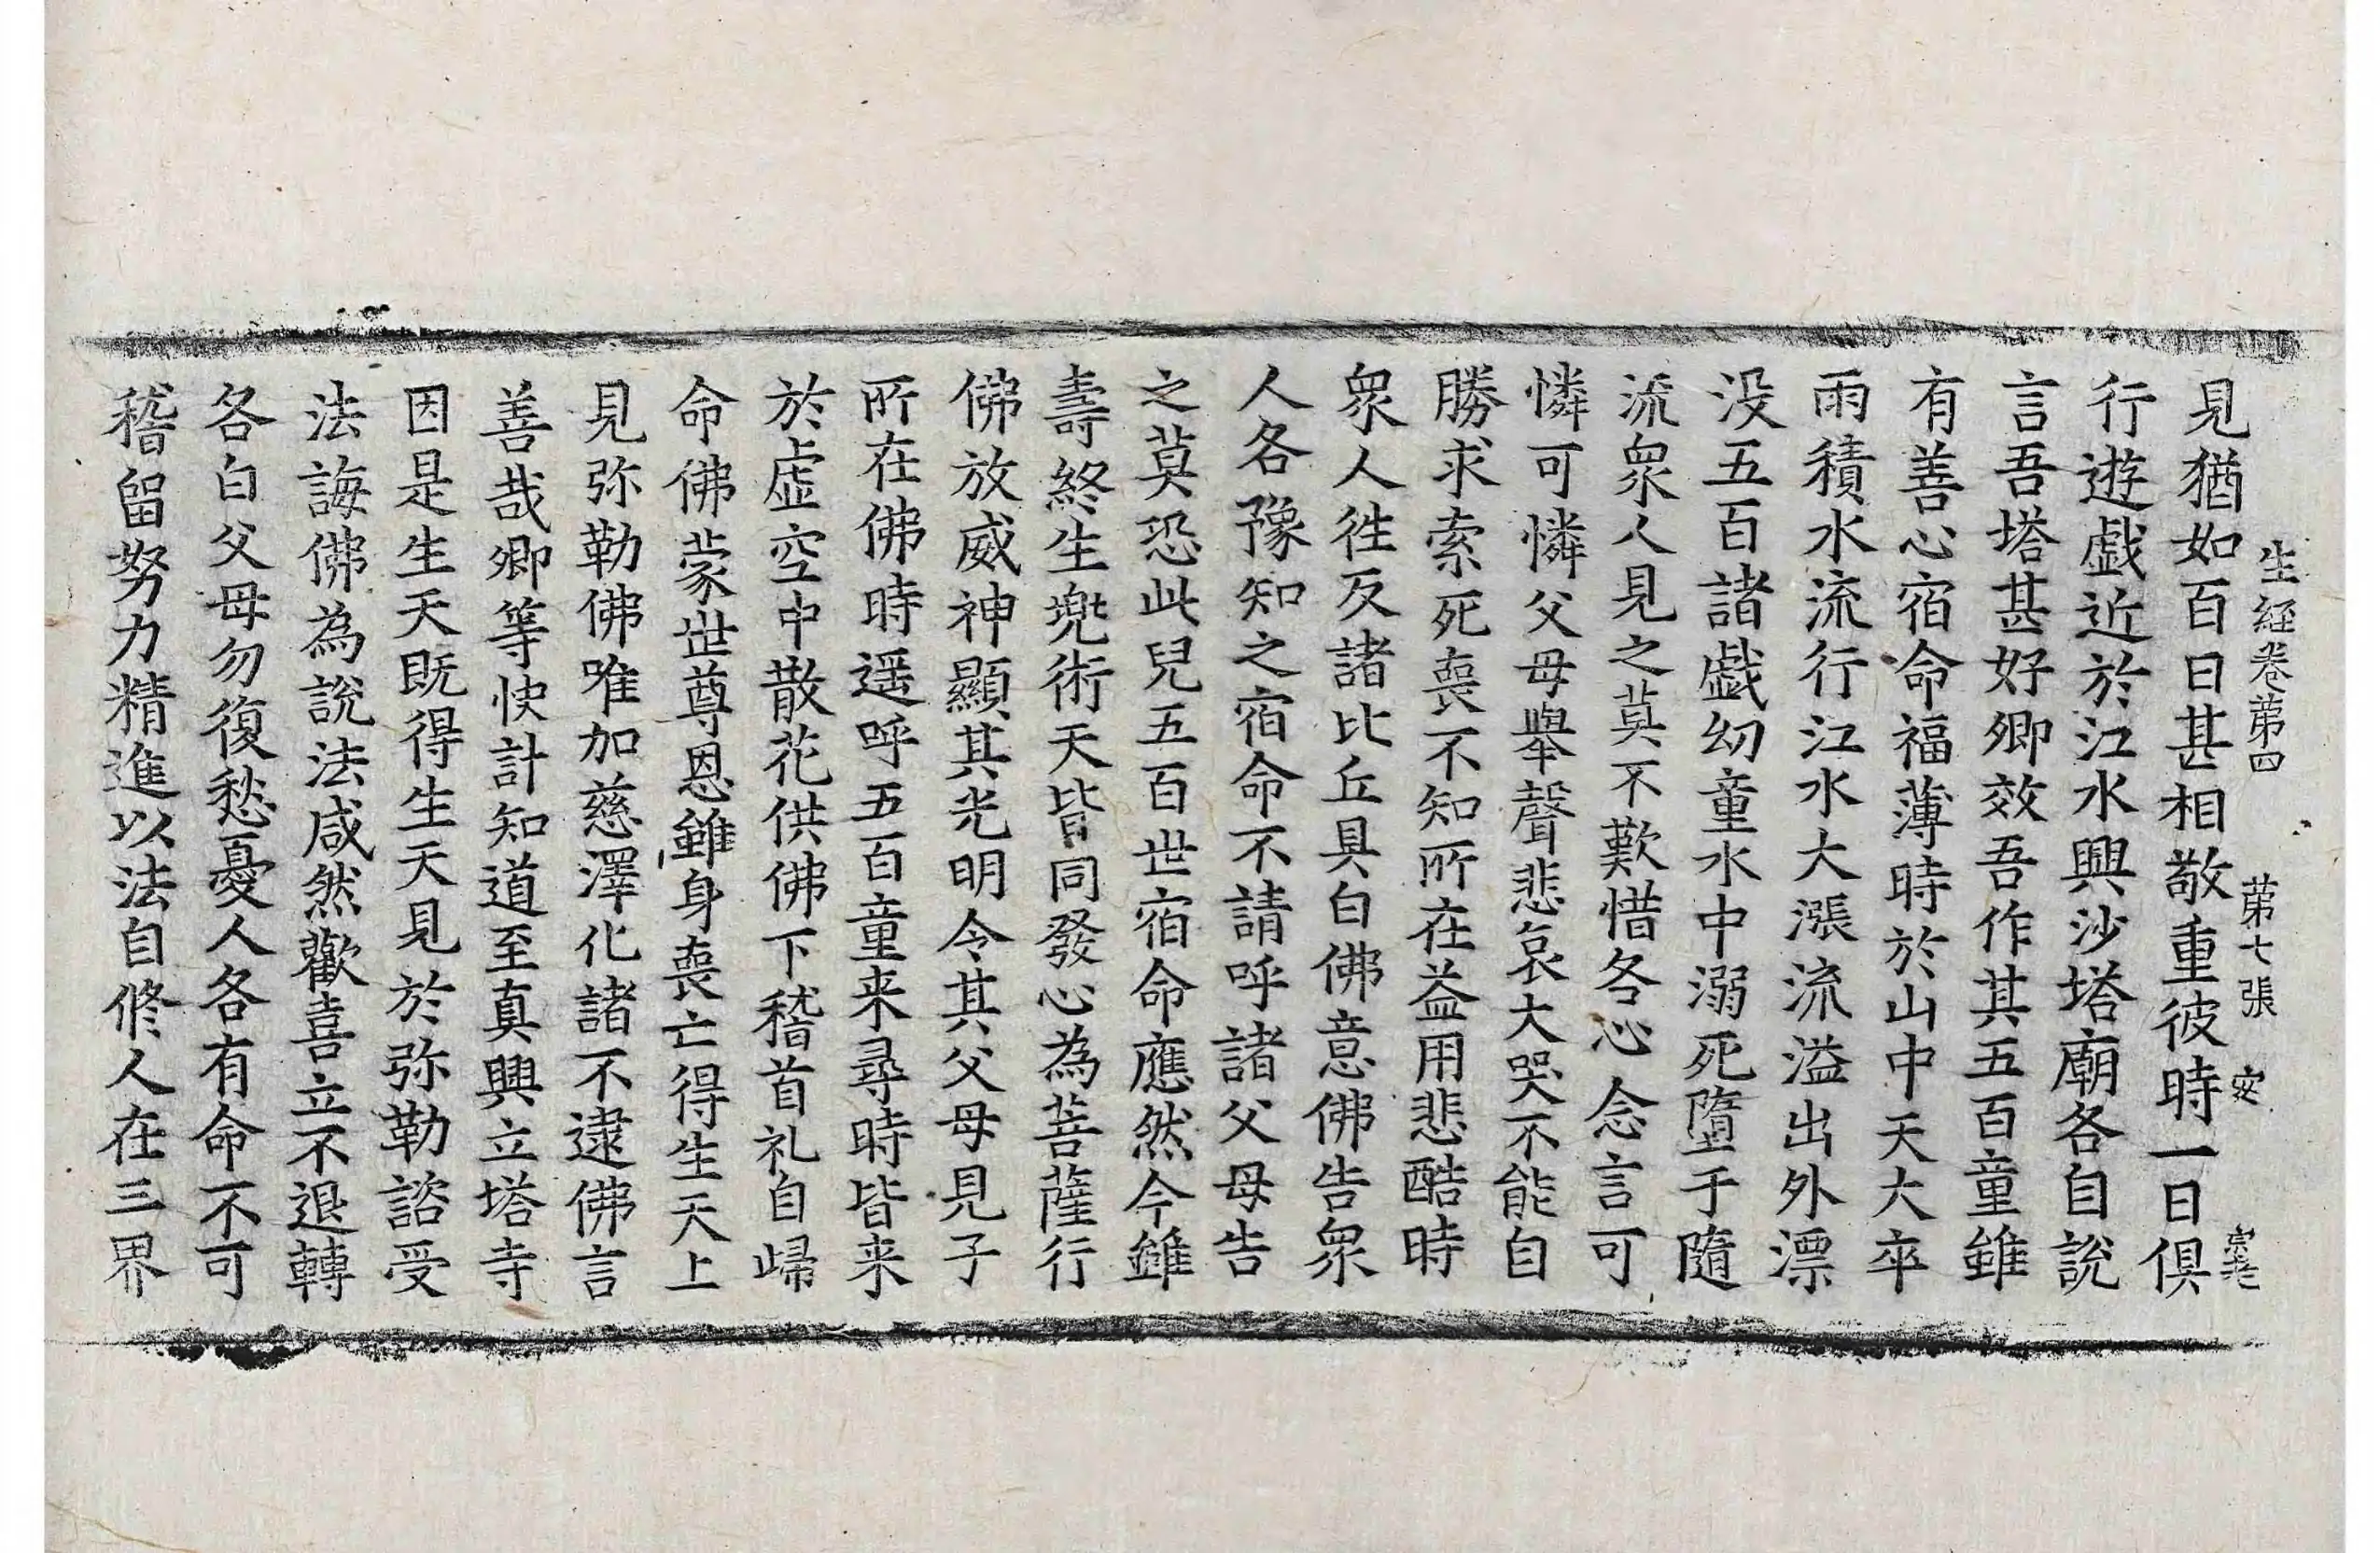 生經卷第四　第七張　安
見猶如百日甚相敬重彼時一日俱
行遊戲近於江水興沙塔廟各自說
言吾塔甚好卿效吾作其五百童雖
有善心宿命福薄時於山中天大卒
雨積水流行江水大漲流溢出外漂
没五百諸戲幼童水中溺死墮于隨
流衆人見之莫不歎惜各心念言可
憐可憐父母舉聲悲哀大哭不能自
勝求索死喪不知所在益用悲酷時
衆人徃反諸比丘具白佛意佛告衆
人各豫知之宿命不請呼諸父母告
之莫恐此兒五百世宿命應然今雖
壽終生兜術天皆同發心為菩薩行
佛放威神顯其光明令其父母見子
所在佛時遥呼五百童来尋時皆来
於虛空中散花供佛下稽首礼自歸
命佛蒙世尊恩雖身喪亡得生天上
見弥勒佛唯加慈澤化諸不逮佛言
善哉卿等快計知道至真興立塔寺
因是生天既得生天見於弥勒諮受
法誨佛為說法咸然歡喜立不退轉
各白父母勿復愁憂人各有命不可
稽留努力精進以法自修人在三界